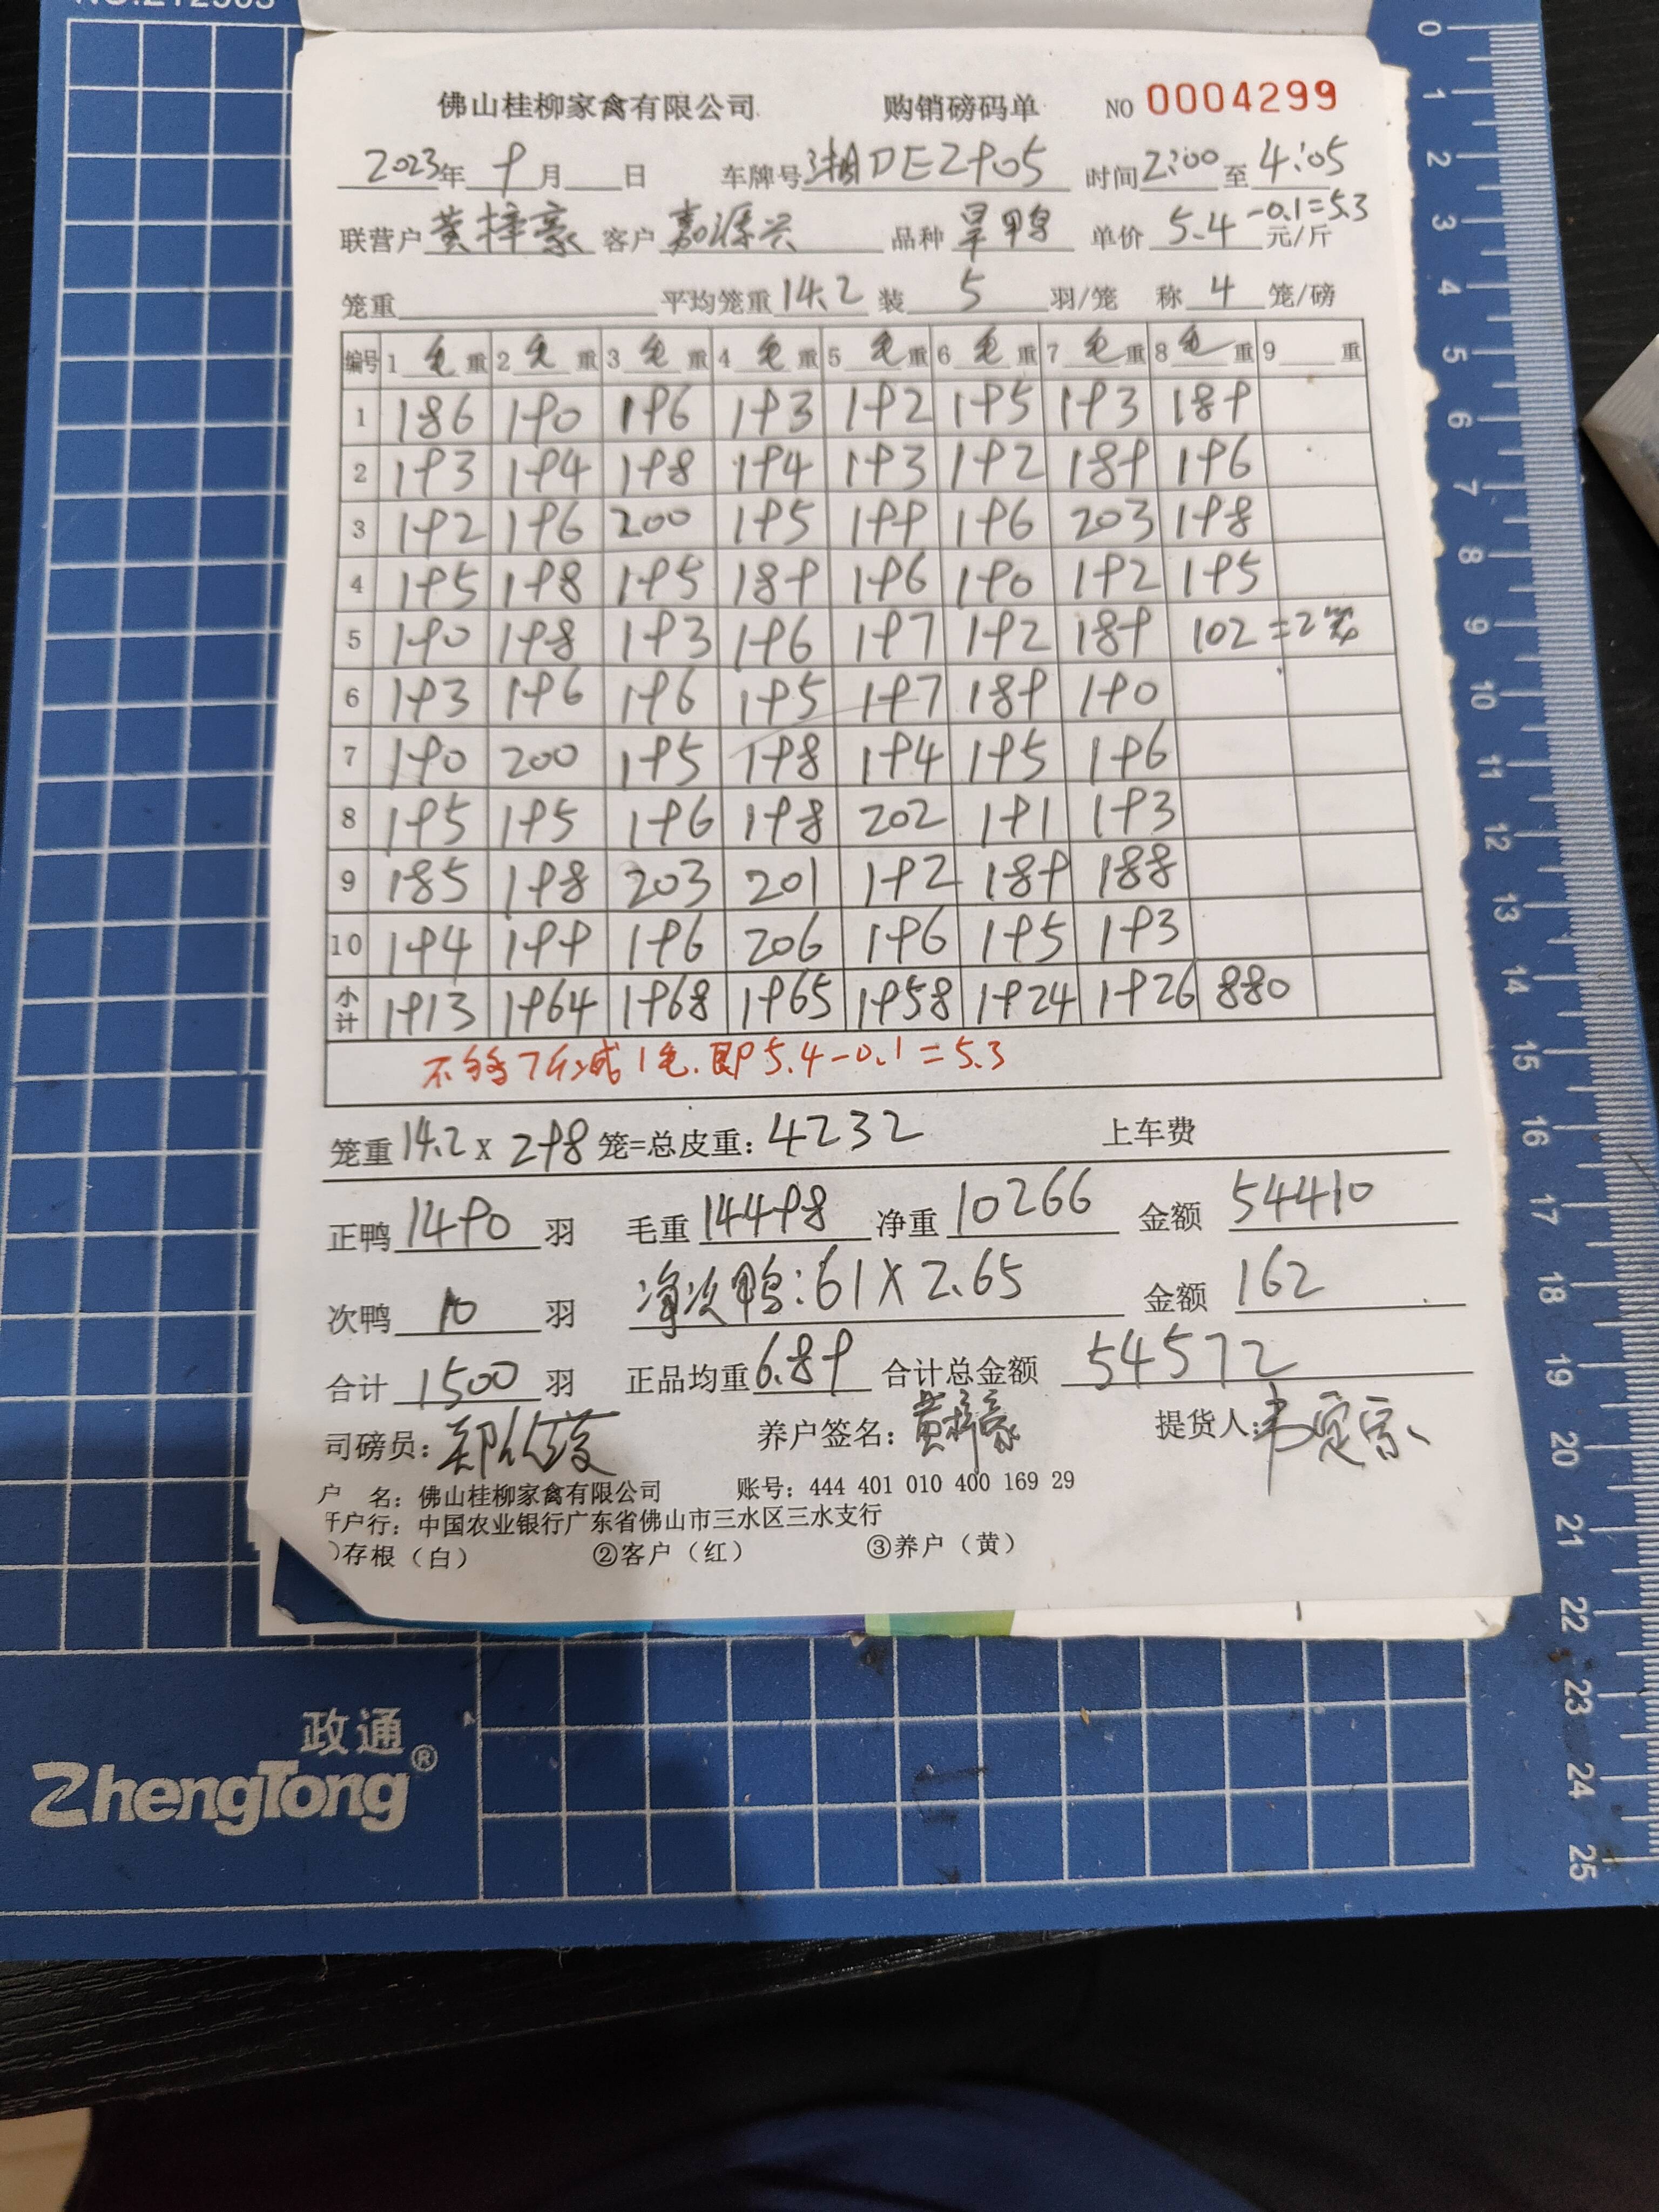 佛山桂柳家禽有限公司 购销磅码单 NO 0004299
2023年 9月 日 车牌号 湘DE2905 时间 2:00 至 4:05
联营户 黄梓豪 客户 嘉源兴 品种 旱鸭 单价 5.4 -0.1=5.3 元/斤
笼重 平均笼重 14.2 装 5 羽/笼 称 4 笼/磅
编号 1 毛 重 2 毛 重 3 毛 重 4 毛 重 5 毛 重 6 毛 重 7 毛 重 8 毛 重 9 重
1 186 190 196 193 192 195 193 189
2 193 194 198 194 193 192 189 196
3 192 196 200 195 199 196 203 198
4 195 198 195 189 196 190 192 195
5 190 198 193 196 197 192 189 102 =2笼
6 193 196 196 195 197 189 190
7 190 200 195 198 194 195 196
8 195 195 196 198 202 191 193
9 185 198 203 201 192 189 188
10 194 199 196 206 196 195 193
小计 1913 1964 1968 1965 1958 1924 1926 880
不够7斤减1毛.即5.4-0.1=5.3
笼重 14.2 x 298 笼=总皮重: 4232 上车费
正鸭 1490 羽 毛重 14498 净重 10266 金额 54410
次鸭 10 羽 净次鸭:61X2.65 金额 162
合计 1500 羽 正品均重 6.89 合计总金额 54572
司磅员: 养户签名: 黄梓豪 提货人:
户 名: 佛山桂柳家禽有限公司 账号: 444 401 010 400 169 29
开户行: 中国农业银行广东省佛山市三水区三水支行
存根（白） ②客户（红） ③养户（黄）
0
1
2
3
4
5
6
7
8
9
10
11
12
13
14
15
16
17
18
19
20
21
22
23
24
25
政通
ZhengTong®